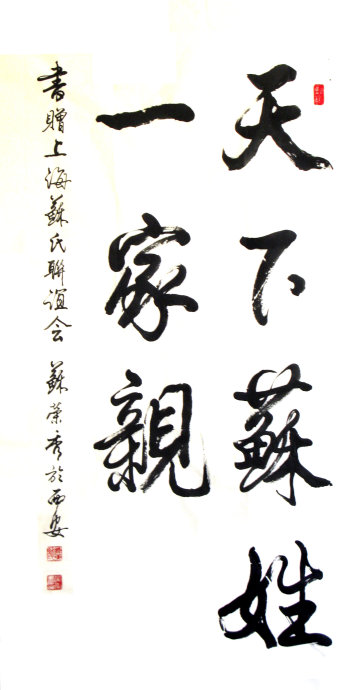 天下蘇姓
一家親
書贈上海蘇氏聯誼会 蘇荣秀於西安